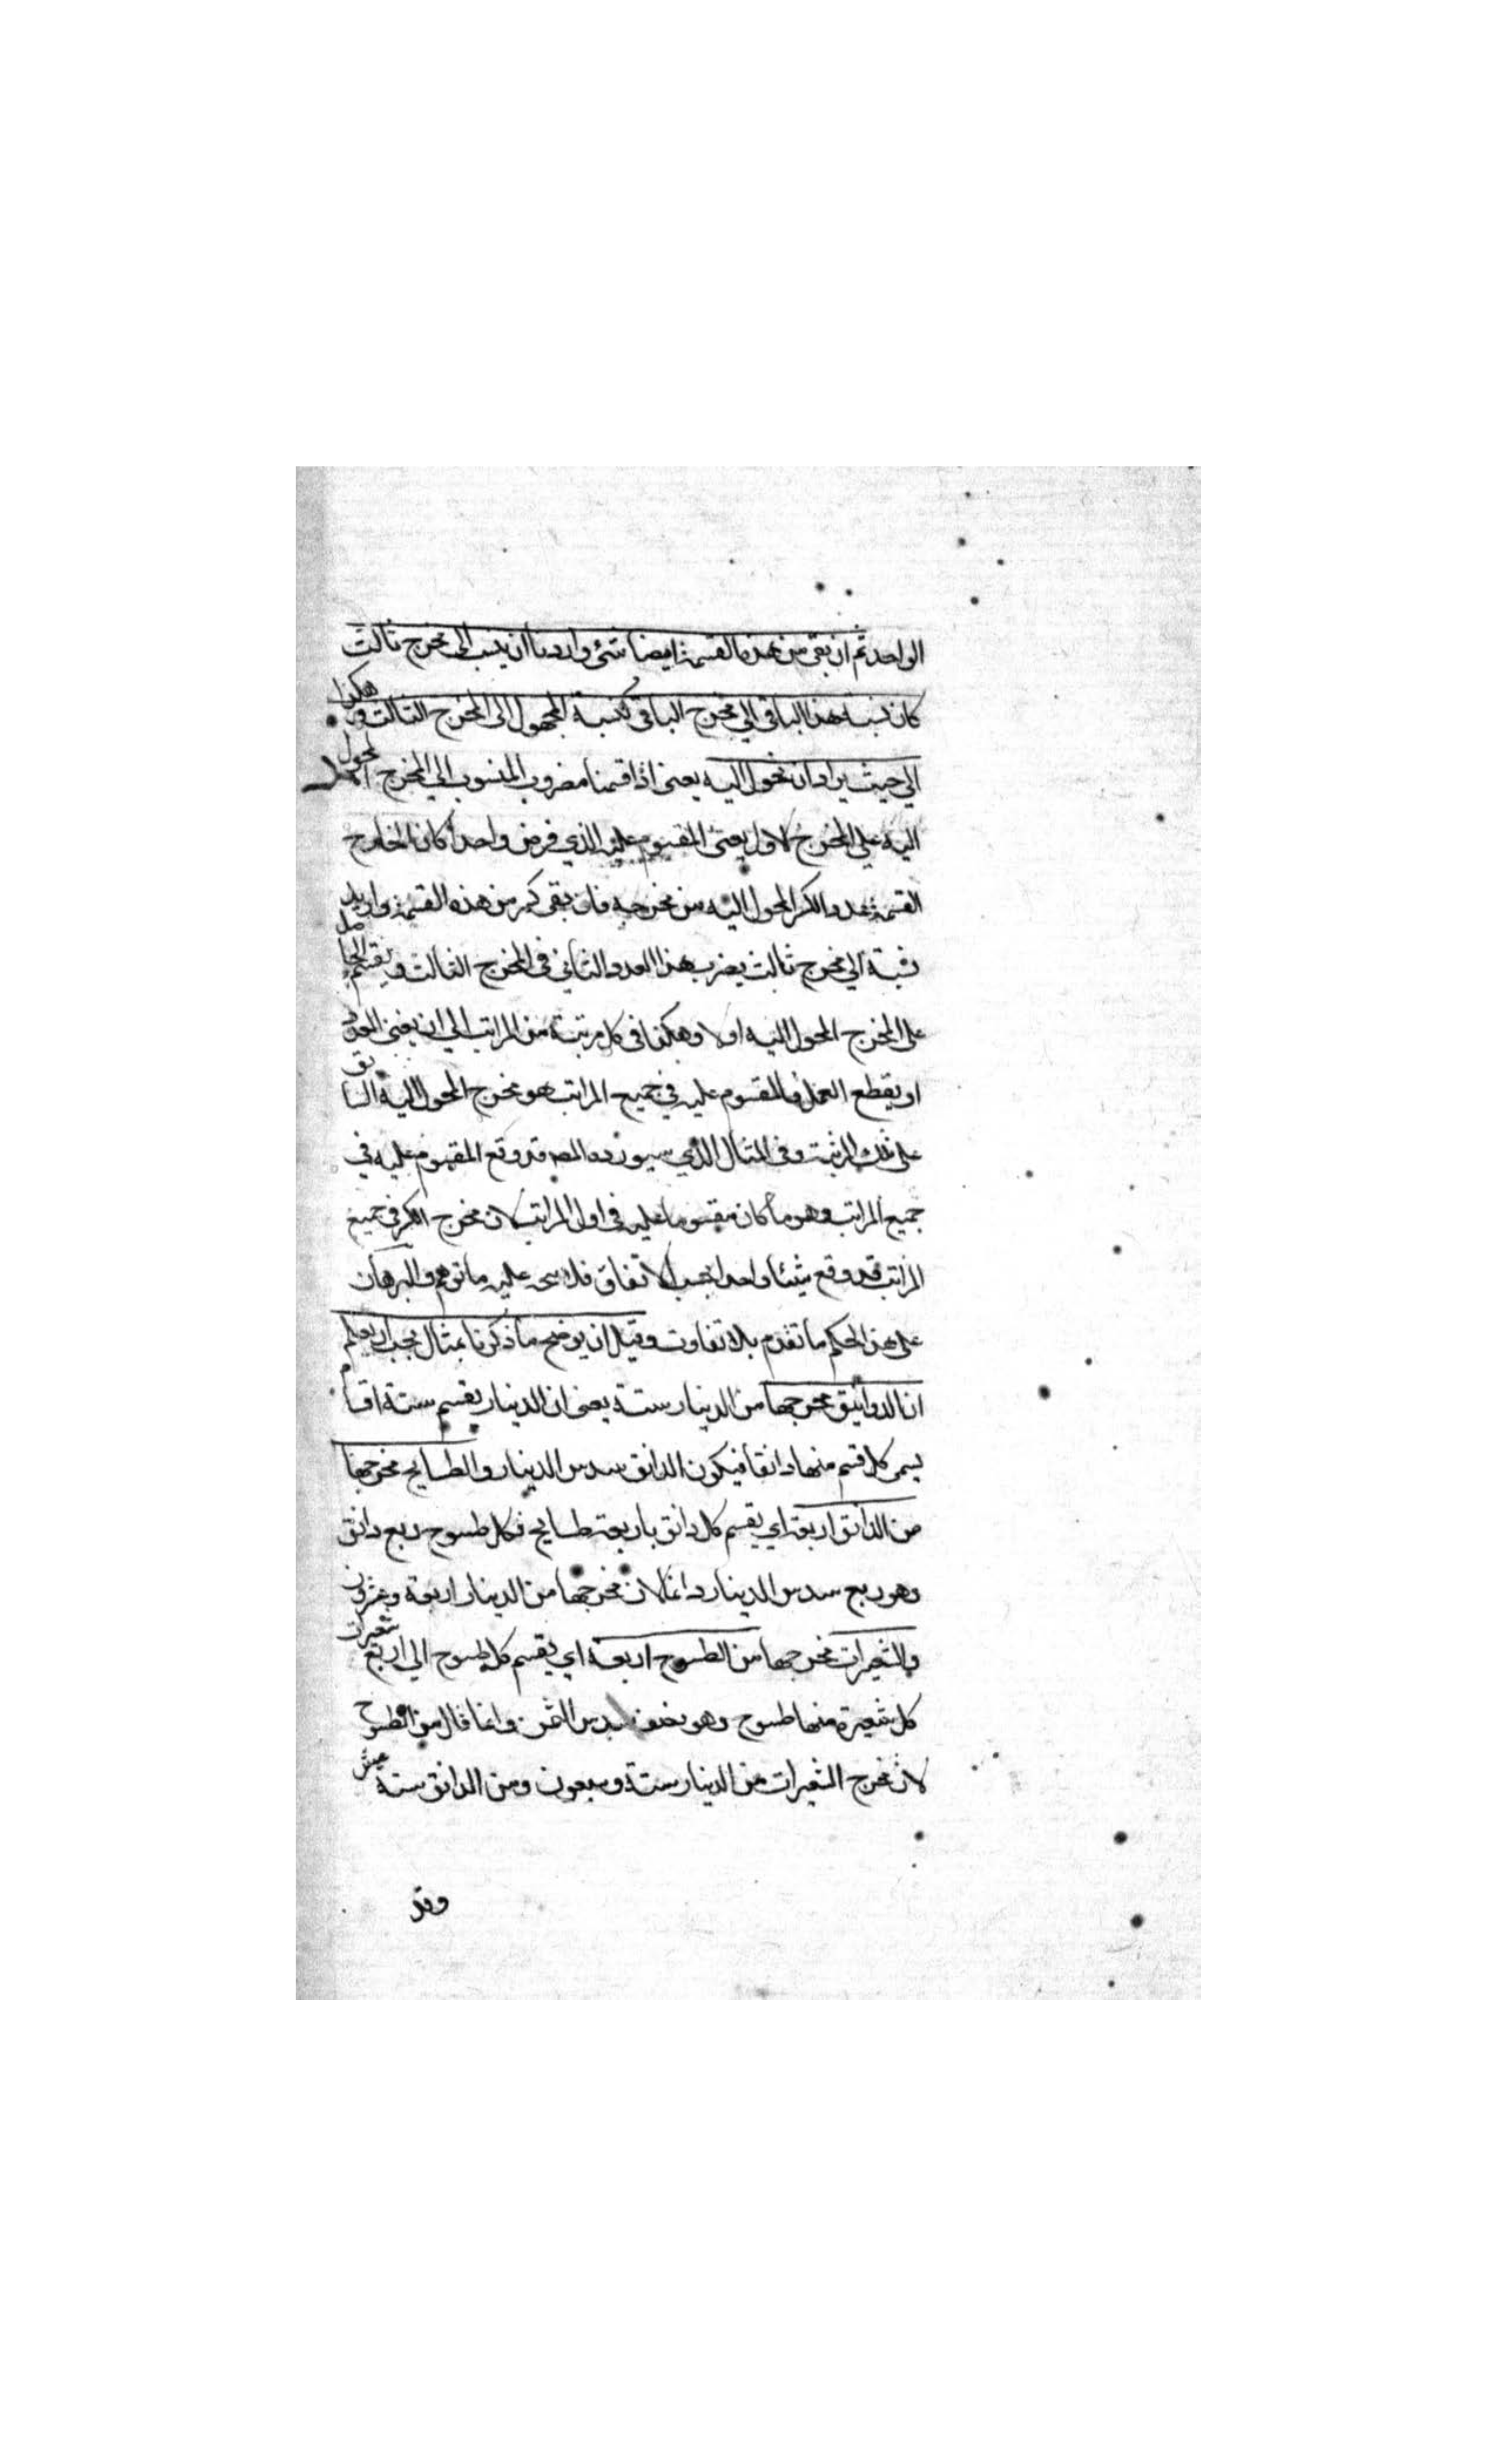 الواحد ثم ان بقى من هذه القسمة ايضا شئ واردنا ان ينسب الى مخرج ثالث
كان نسبة هذا الباقي الي مخرج الباقي كنسبة المجهول الى المخرج الثالث وهكذا
الي حيث يراد ان نحول اليه يعنى اذا قسمنا مضروب المنسوب الي المخرج المحول
اليه علي المخرج الاول يعنى المقسوم عليه الذي فرض واحدا كان الخارج
القسمة عدد الكسر المحول اليه من مخرجه فان بقى كسر من هذه القسمة واريد
نسبته الي مخرج ثالث يضرب هذا العدد الثاني في المخرج الثالث ويقسم الحاصل
على المخرج المحول اليه اولا وهكذا في كل مرتبة من المراتب الي ان يفنى العدد
او يقطع العمل فالمقسوم عليه في جميع المراتب هو مخرج المحول اليه السابق
على تلك المرتبة وفي المثال الذي سيورده المص قد وقع المقسوم عليه في
جميع المراتب وهو ما كان مقسوما عليه في اول المراتب لان مخرج الكسر في جميع
المراتب قد وقع شيئا واحدا بحسب الاتفاق فلا عليه ما توهم والبرهان
على هذا الحكم ما تقدم بلا تفاوت وقبل ان يوضح ما ذكرنا بمثال يجب ان يعلم
ان الدوانيق مخرجها من الدينار ستة يعنى ان الدينار يقسم ستة اقسام
يسمى كل قسم منها دانقا فيكون الدانق سدس الدينار والطسايج مخرجها
من الدانق اربعة اي يقسم كل دانق باربعة طسايج فكل طسوج ربع دانق
وهو ربع سدس الدينار لان مخرجها من الدينار اربعة وعشرون
والشعيرات مخرجها من الطسوج اربعة اي يقسم كل طسوج الي اربع شعيرات
كل شعيرة منها طسوج وهو نصف سدس الثمن وانما قال من الطسوج
لان مخرج الشعيرات من الدينار ستة وسعون ومن الدانق ستة عشر
وقد